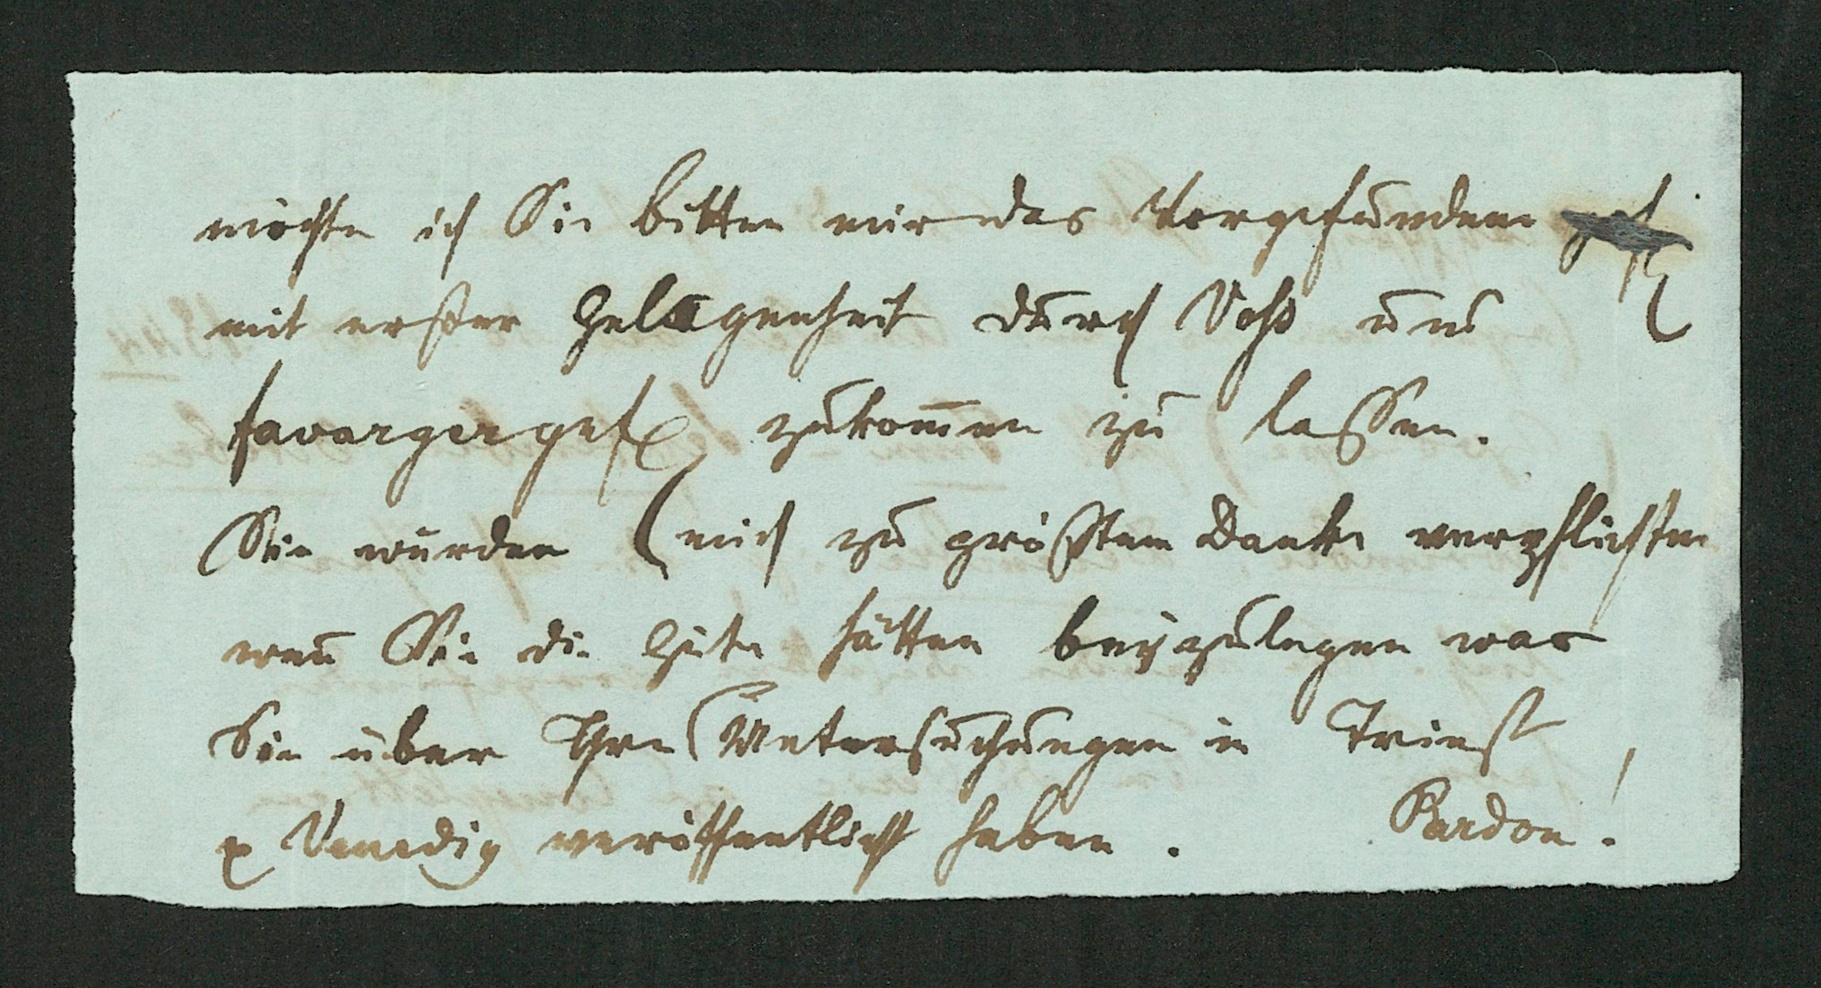 möchte ich Sie bitten mir das Vorgefundene
mit erster Gelegenheit durch Voss
Favarger zukom̅en zu lassen.
Sie würden mich zu größtem Danke verpflichten
wen̅ Sie die Güte hätten beyzulegen was
Sie über Ihre Untersuchungen in Triest
Venedig veröffentlicht haben. Pardon!